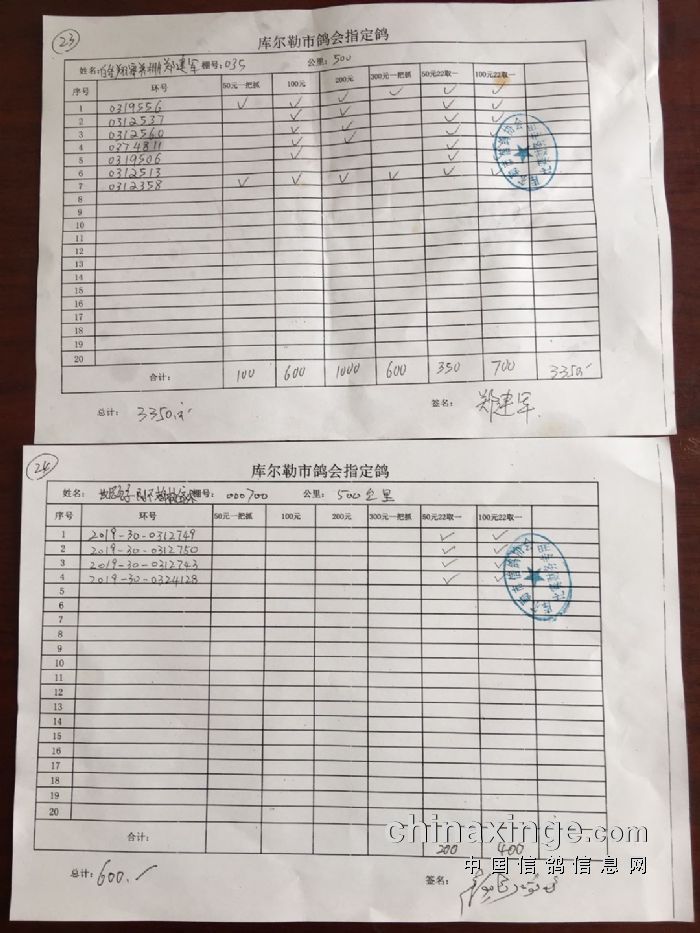 23
库尔勒市鸽会指定鸽
姓名: 郑建军 棚号: 035 公里: 500
序号 环号 50元一把抓 100元 200元 300元一把抓 50元22取一 100元22取一
1 0319556 ✓ ✓ ✓ ✓ ✓ ✓
2 0312537 ✓ ✓ ✓ ✓
3 0312560 ✓ ✓ ✓ ✓
4 0374811 ✓ ✓ ✓ ✓
5 0319506 ✓ ✓ ✓
6 0312513 ✓ ✓
7 0312358 ✓ ✓ ✓ ✓ ✓ ✓
8
9
10
11
12
13
14
15
16
17
18
19
20
合计: 100 600 1000 600 350 700 3350
总计: 3350 签名: 郑建军
24
库尔勒市鸽会指定鸽
姓名: 棚号: 000700 公里: 500公里
序号 环号 50元一把抓 100元 200元 300元一把抓 50元22取一 100元22取一
1 2019-30-0312749 ✓ ✓
2 2019-30-0312750 ✓ ✓
3 2019-30-0312743 ✓ ✓
4 2019-30-0324128 ✓ ✓
5
6
7
8
9
10
11
12
13
14
15
16
17
18
19
20
合计: 200 400
总计: 600. 签名:
chinaxinge.com
中国信鸽信息网